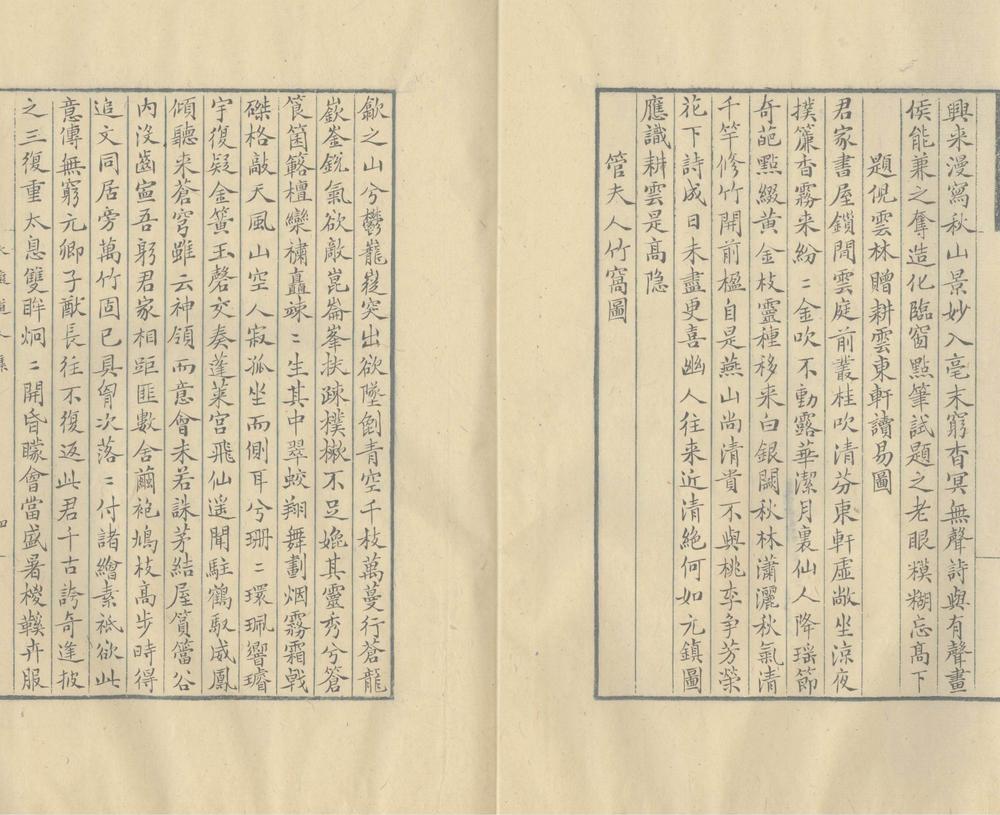 興来漫寫秋山景妙入毫末窮杳冥無聲詩與有聲畫
侯能兼之奪造化臨窗點筆試題之老眼糢糊忘高下
題倪雲林贈耕雲東軒讀易圖
君家書屋鎖閒雲庭前叢桂吹清芬東軒虛敞坐涼夜
撲簾香霧来紛〻金吹不動露華潔月裏仙人降瑶節
奇葩點綴黄金枝靈種移来白銀闕秋林瀟灑秋氣清
千竿修竹開前楹自是燕山尚清貴不與桃李争芳榮
花下詩成日未盡更喜幽人往来近清絶何如元鎮圖
應識耕雲是高隐
管夫人竹窩圖
歙之山兮鬱巃嵸突出欲墜倒青空千枝萬蔓行蒼龍
嶔崟鋭氣欲敵崑崙峯扶疎樸樕不足媲其靈秀兮簹
筤箘簵檀欒橚矗竦〻生其中翠蛟翔舞劃烟霧霜戟
磔格敲天風山空人寂孤坐而側耳兮珊〻環珮響璿
宇復疑金簧玉磬交奏蓬莱宫飛仙遥聞駐鶴馭威鳳
傾聽来蒼穹雖云神領而意會未若誅茅結屋篔簹谷
内沒齒寘吾躬君家相距匪數舍繭袍鳩枝高步時得
追文同居旁萬竹固已具胷次落〻付諸繪素袛欲此
意傳無窮元卿子猷長往不復返此君千古誇奇逢披
之三復重太息雙眸炯〻開昏矇會當盛暑椶鞵卉服